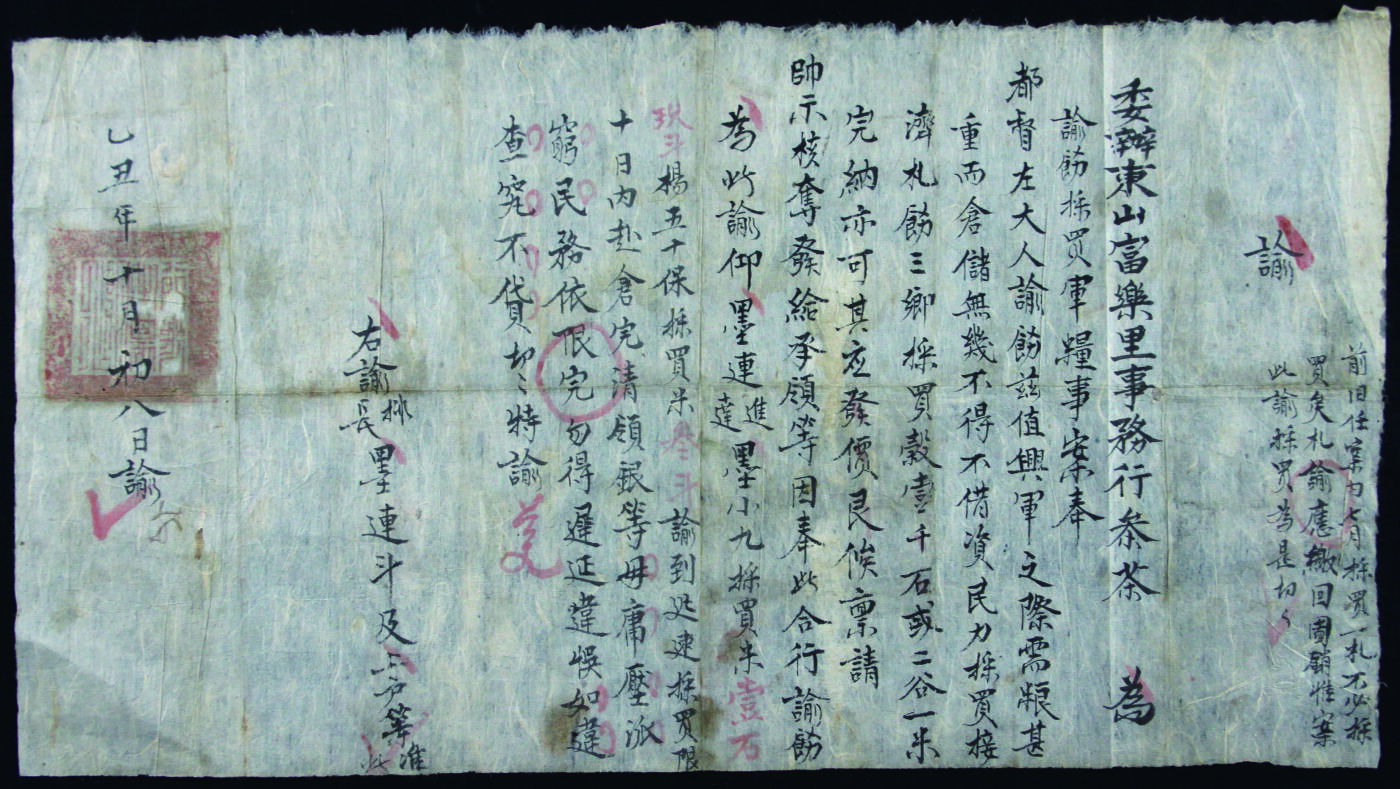 前旧任案內七月採買一札不必採
買矣札諭應繳回圊銷惟案
此諭採買為是切々
諭
委辦東山富樂里事務行叅茶　為
諭飭採買軍糧事案奉
都督左大人諭飭茲值興軍之際需糧甚
重而倉儲無幾不得不借資民力採買接
濟札飭三鄉採買穀壹千石或二谷一米
完納亦可其应發價艮候禀請
帥示核奪發給承領等因奉此合行諭飭
為此諭仰墨連進達墨小九採買米壹石
玖斗楊五十保採買米叁斗諭到迅速採買限
十日內赴倉完清領銀等毋庸壓派
窮民務依限完勿得遲延違悞如違
查究不貸切〻特諭
右諭排長墨連斗及上户等准此
乙丑年十月初八日諭